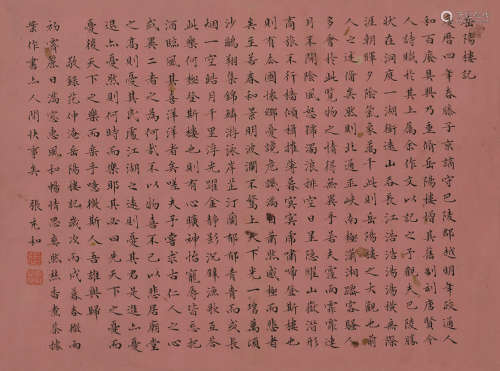 岳陽樓記
慶曆四年春滕子京謫守巴陵郡越明年政通人
和百廢具興乃重修岳陽樓增其舊制刻唐賢今
人詩賦於其上屬余作文以記之予觀夫巴陵勝
狀在洞庭一湖銜遠山吞長江浩浩湯湯橫無際
涯朝暉夕陰氣象萬千此則岳陽樓之大觀也前
人之述備矣然則北通巫峽南極瀟湘遷客騷人
多會於此覽物之情得無異乎若夫霪雨霏霏連
月不開陰風怒濤濁浪排空日星隱曜山嶽潛形
商旅不行檣傾楫摧薄暮冥冥虎嘯猿啼登斯樓也
則有去國懷鄉憂讒畏譏滿目蕭然感極而悲者
矣至若春和景明波瀾不驚上下天光一碧萬頃
沙鷗翔集錦鱗游泳岸芷汀蘭郁郁青青而或長
烟一空皓月千里浮光躍金靜影沉璧漁歌互答
此樂何極登斯樓也則有心曠神怡寵辱皆忘把
酒臨風其喜洋洋者矣嗟夫予嘗求古仁人之心
或異二者之為何哉不以物喜不以己悲居廟堂
之高則憂其民處江湖之遠則憂其君是進亦憂
退亦憂然則何時而樂耶其必曰先天下之憂而
憂後天下之樂而樂乎噫微斯人吾誰與歸
敬錄范仲淹岳陽樓記歲次丙戌春暮
於寄廬日滿窗惠風和暢情思香煮茶據
案作書亦人間快事矣 張充和